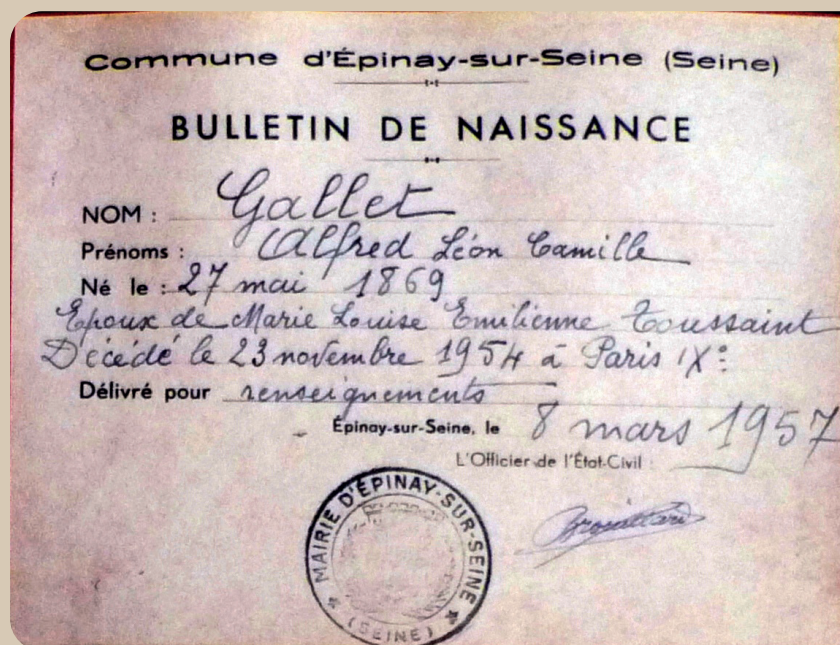 Commune d'Épinay-sur-Seine (Seine)
BULLETIN DE NAISSANCE
NOM : Gallet
Prénoms : Alfred Léon Camille
Né le : 27 mai 1869
Epoux de Marie Louise Emilienne Toussaint
Décédé le 23 novembre 1954 à Paris IXe
Délivré pour renseignements
Épinay-sur-Seine, le 8 mars 1957
L'Officier de l'État-Civil
MAIRIE D'ÉPINAY-SUR-SEINE
(SEINE)